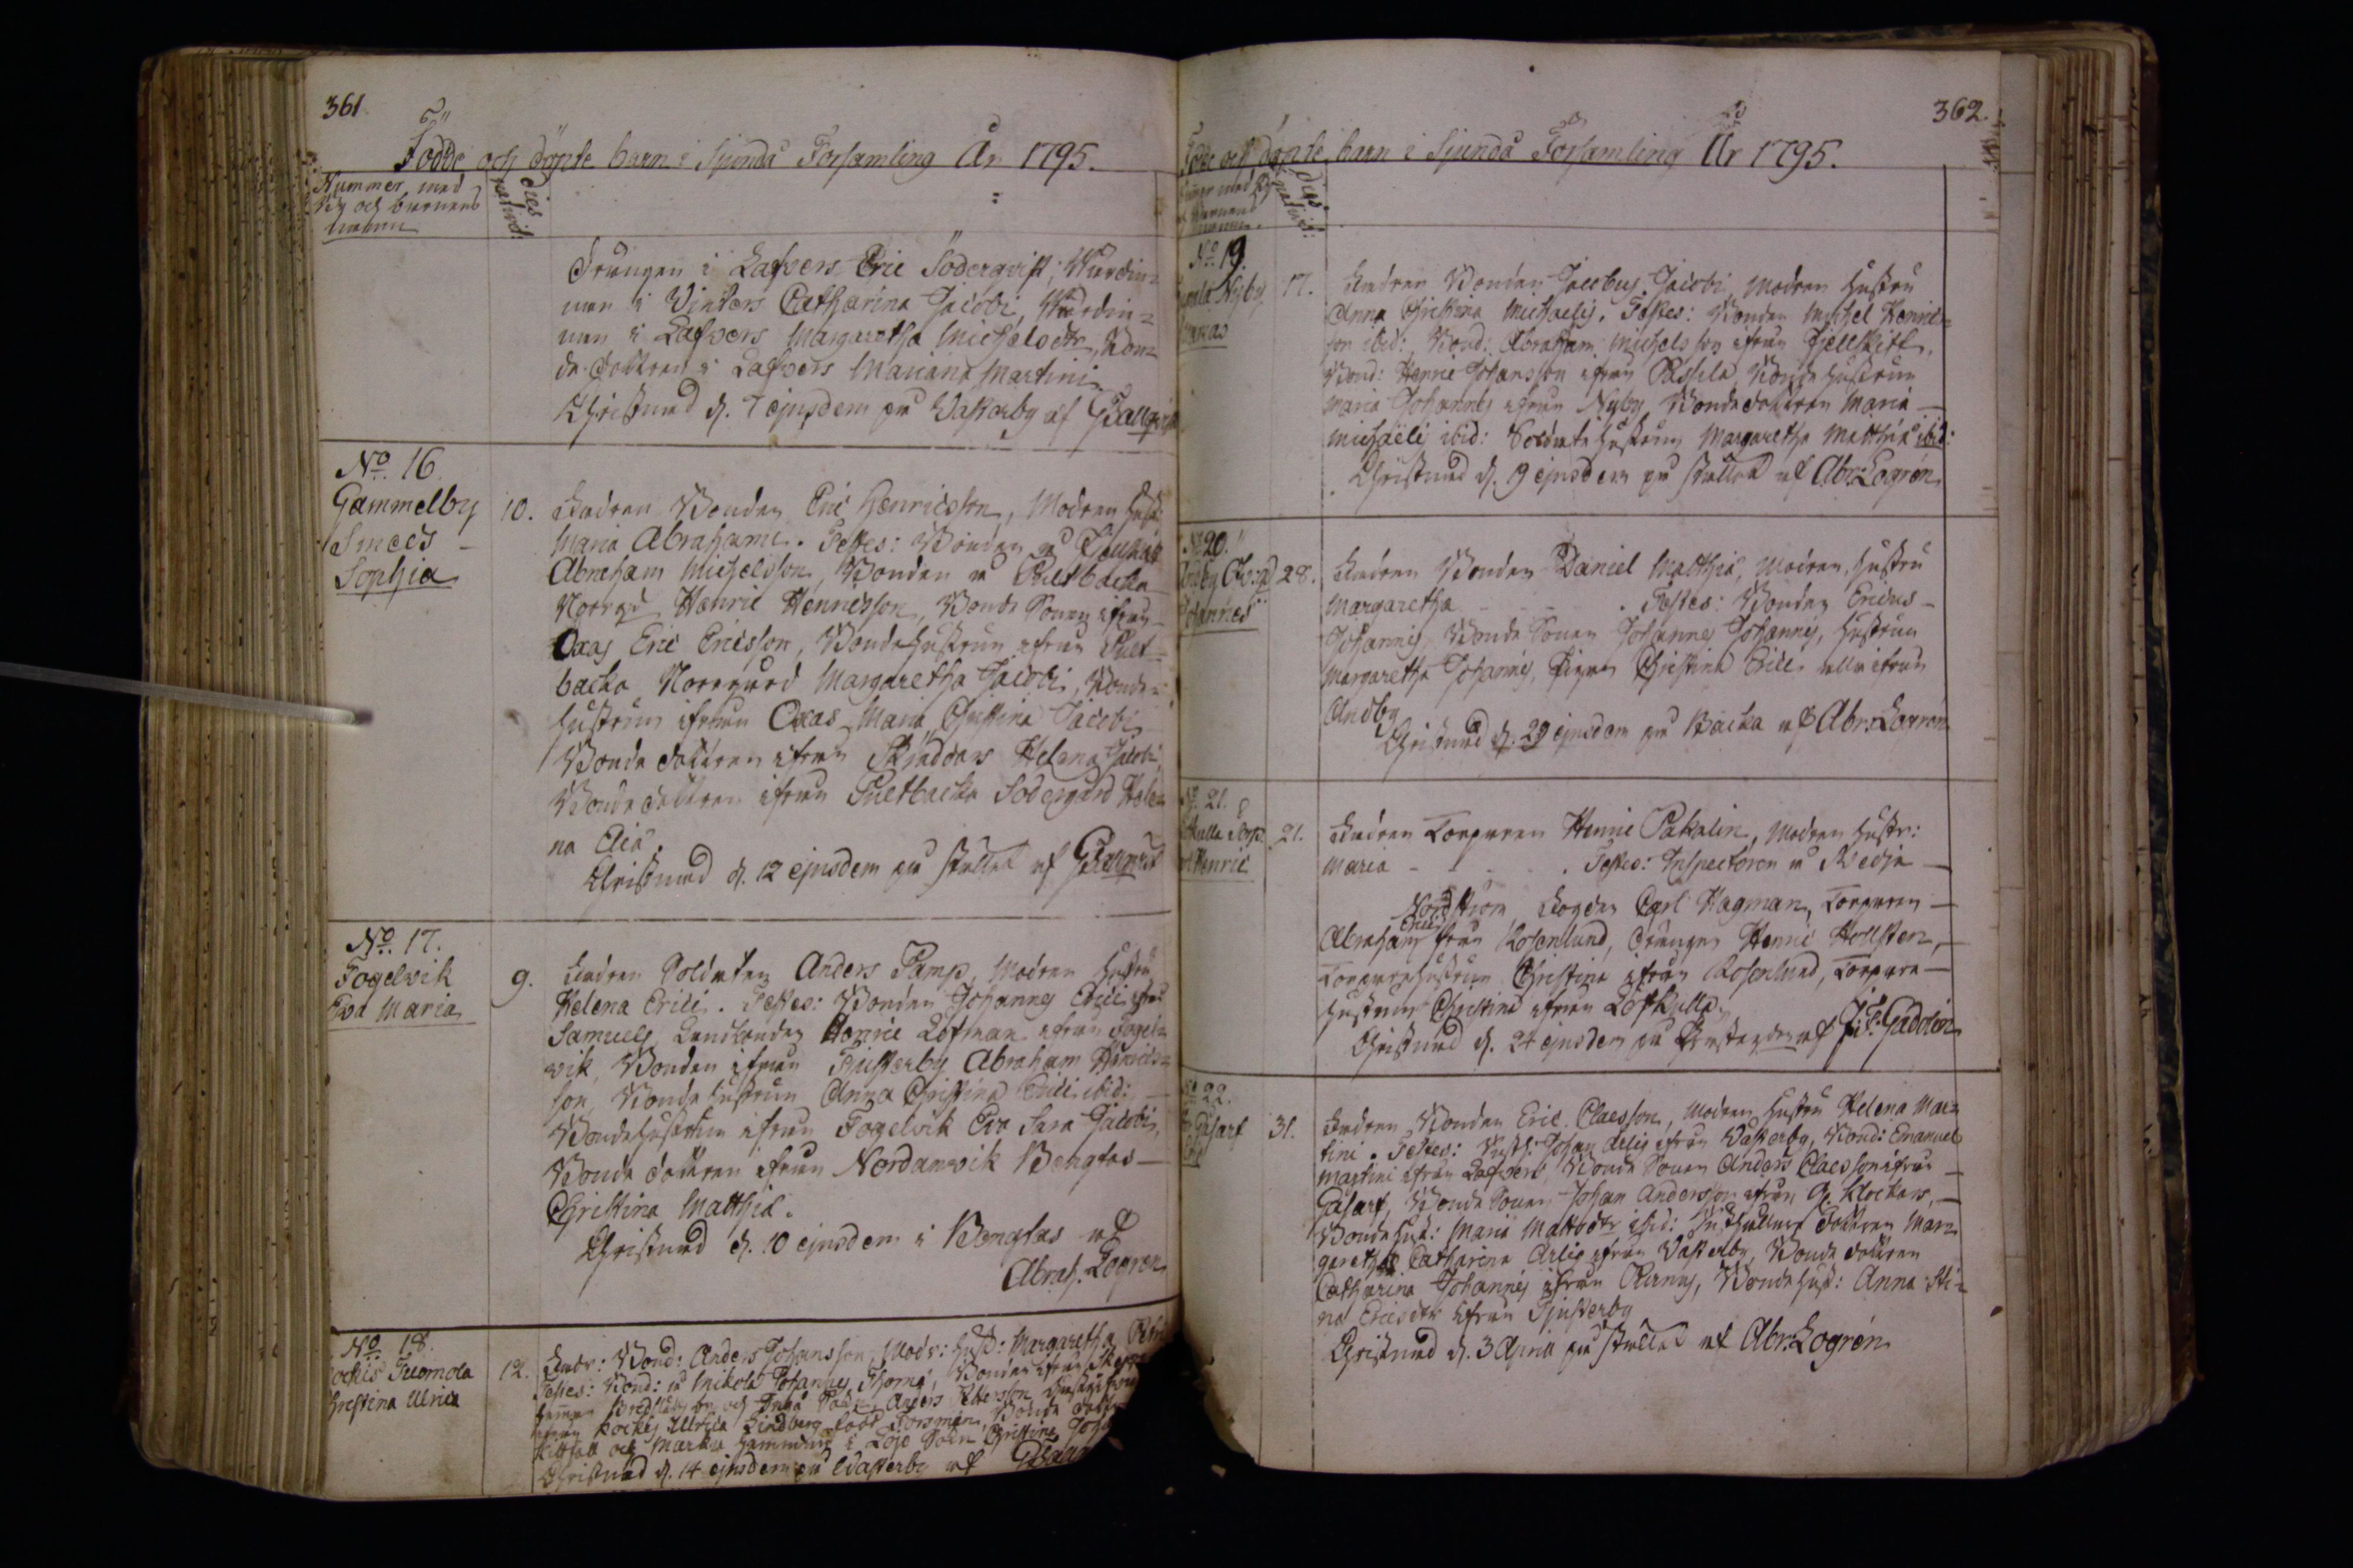 361
Födde och döpte barn i Sjundå Församling År 1795.
Nummer med
By och barnens
namn
dies
nativit:
Drängen i Lafvers Eric Söderqvist; Wärdin=
nan i Vinters Catharina Jacobi, Wärdin=
nan i Lafvers Margaretha Michelsdtr, Bon=
de Dottren i Lafvers Mariana Martini
Christnad d. 7 ejusdem på Wästerby af
No. 16.
Gammelby
Smeds
Sophia
10. Fadren Bonden Eric Henricsson, Modren Hust:
Maria Abrahami. Testes: Bonden
Abraham Michelsson, Bonden
Norrgd Henric Henricsson, Bonde Sonen ifrån
Oxas Eric Ericsson, Bondehustrun ifrån Puet=
backa Norrgård Margaretha Jacobi, Bonde=
hustrun ifrån Oxas Maria Christina Jacobi
Bonde dottren ifrån Skräddars Helena Jacobi,
Bonde dottren ifrån Puetbacka Södergård Hele=
na
Christnad d. 12 ejusdem på stället af
No. 17.
Fogelvik
Eva Maria
9. Fadren Soldaten Anders Pamp, Modren Hustru
Helena Erici. Testes: Bonden Johannes Erici ifrån
Samuels, Landbonden Henric Löfman ifrån Fogel=
vik, Bonden ifrån Tjusterby Abraham Henrics=
son, Bonde hustrun Anna Christina Erici ibid:
Bondehustrun ifrån Fogelvik Eva Sara Jacobi,
Bonde dottren ifrån Nordanvik Bengtas
Christina Matthiæ.
Christnad d. 10 ejusdem i Bengtas af
Abrah. Logren
No. 18.
Tuomola
Christina Ulrica
12. Fadr: Bond: Anders Johansson, Modr: Hust: Margaretha
Testes: Bond: Johannes Thomæ, Bonden ifrån
och Ingå Sokn, Anders
ifrån Ulrica Lindberg född Forsman, Bonde
och Marku hemman i Lojo Sokn Christina
Christnad d. 14 ejusdem på Wästerby af
362.
Födde och döpte barn i Sjundå Församling År 1795.
Nummer med By
och Barnens
namn.
dies
nativit:
No. 19.
Nyby
17. Fadren Bonden Jacobus Jacobi, Modren Hustru
Anna Christina Michaelis. Testes: Bonden Michel Henrics=
son ibid:, Bond: Abraham Michelsson ifrån Fjellskift,
Bond: Henric Johansson ifrån Passila, Bondehustrun
Maria Johannis ifrån Nyby, Bondedottren Maria
Michaëli ibid: Soldatehustrun Margaretha Matthiæ ibid:
Christnad d. 19 ejusdem på stället af Abr: Logrén
No. 20.
Johannes
28. Fadren Bonden Daniel Matthiæ, Modren, Hustru
Margaretha - - - . Testes: Bonden Ericus
Johannis, Bonde Sonen Johannes Johannis, Hustrun
Margaretha Johannis, Pigan Christina Erici alla ifrån
Andby
Christnad d. 29 ejusdem på Backa af Abr: Logrén
No. 21.
Henric
21. Fadren Torparen Henric Pakalin, Modren Hustr:
Maria - - - - . Testes: Inspectoren
Nordström, Fogden Carl Hagman, Torparen
Abraham Erici från Rosenlund, Drängen Henric Hollsten,
Torparehustrun Christina ifrån Rosenlund, Torpare
hustrun Christina ifrån Löfkulla.
Christnad d. 24 ejusdem på Prestgården af J: F: Gadolin
No. 22.
Gåsarf
31. Fadren Bonden Eric Claesson, Modren Hustru Helena Mar=
tini. Testes: Johan Arlig ifrån Wästerby, Bond: Emanuel
Martini ifrån Lafvers, Bonde Sonen Anders Claesson ifrån
Gåsarf, Bonde Sonen Johan Andersson ifrån Klockars,
Bondehust: Maria Mattsdtr ibid: Dottren Mar=
garetha Catharina Arlig ifrån Wästerby, Bonde dottren
Catharina Johannis ifrån Bondehust: Anna Sti=
na Ericsdtr ifrån Tjusterby
Christnad d. 3 April på stället af Abr: Logrén